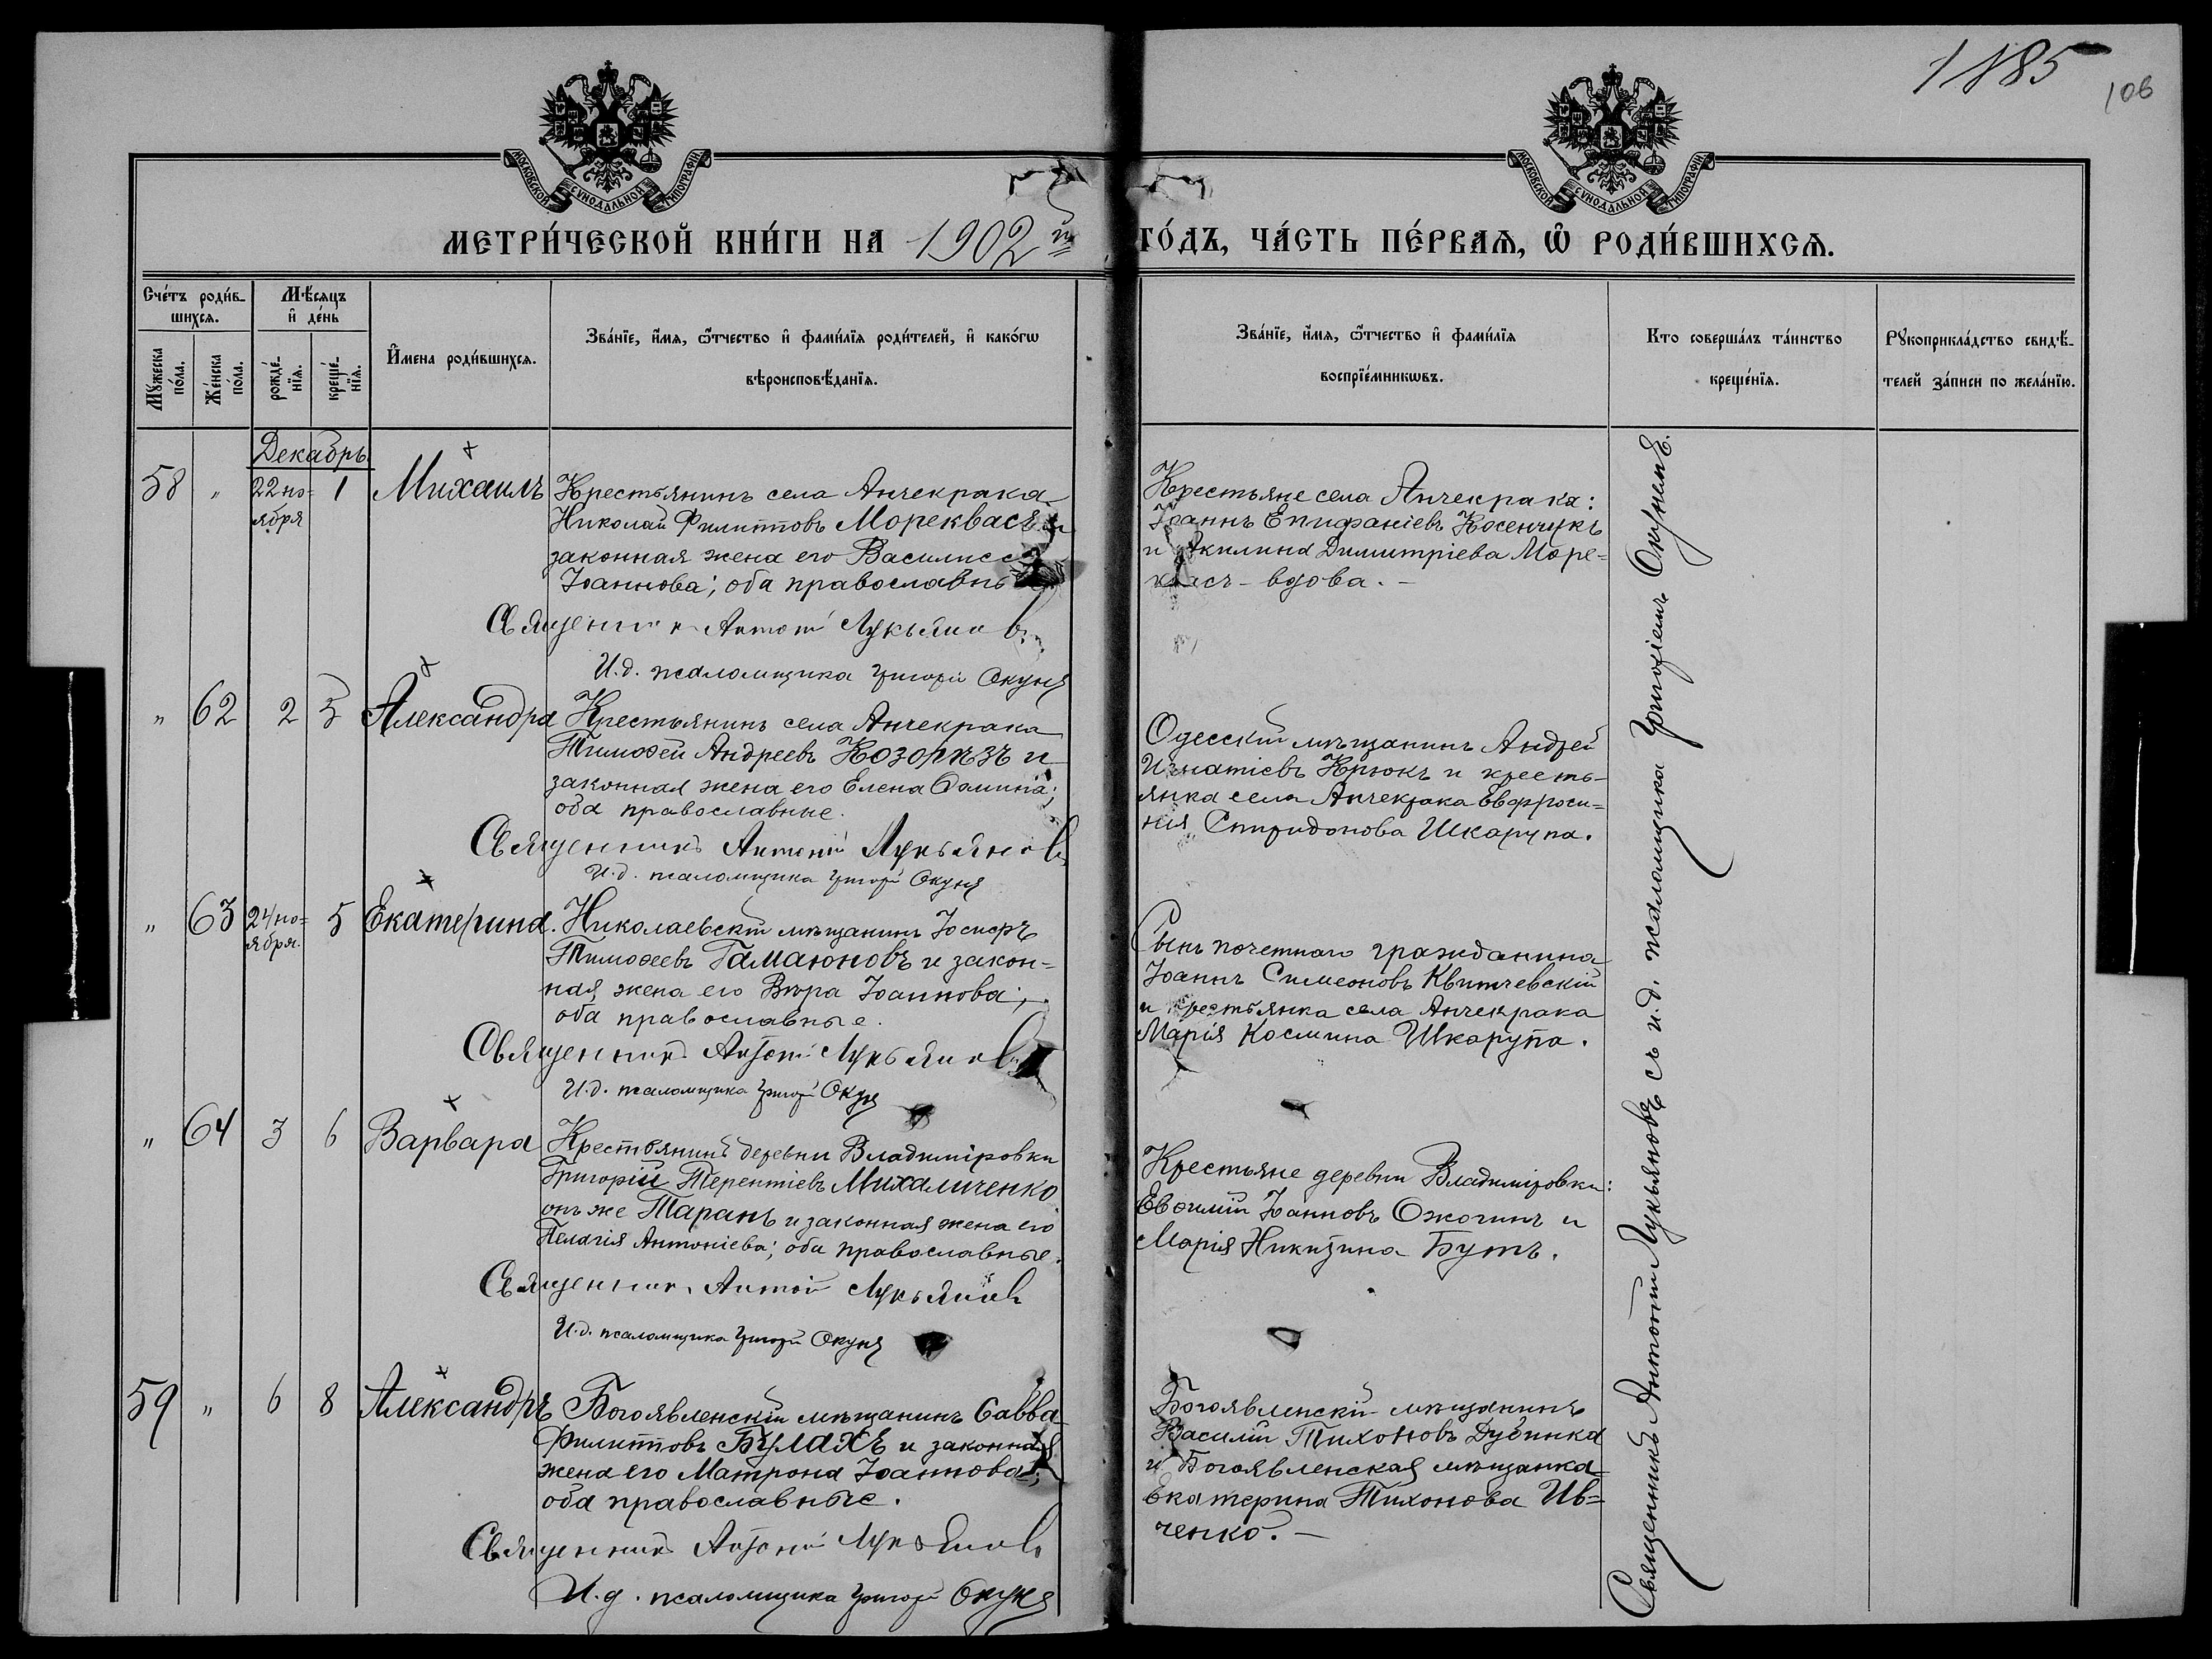 1885
106
МОСКОВСКОЙ СѴНОДАЛЬНОЙ ТИПОГРАФІИ
МОСКОВСКОЙ СѴНОДАЛЬНОЙ ТИПОГРАФІИ
МЕТРИ́ЧЕСКОЙ КНИ́ГИ НА 1902й
ГО́ДЪ, ЧА́СТЬ ПЕ́РВАѦ, Ѽ РОДИ́ВШИХСѦ.
Сче́тъ роди́в-
шихсѧ.
Мѣ́сѧцъ
и҆ де́нь
Мꙋ́жеска
по́ла.
Же́нска
по́ла.
рожде́-
нїѧ.
креще́-
нїѧ.
И҆мена роди́вшихсѧ.
Зва́нїе, и҆́мѧ, ѻ҆́тчество и҆ фами́лїѧ роди́телей, и҆ како́гѡ
вѣроисповѣ́данїѧ.
Зва́нїе, и҆́мѧ, ѻ҆́тчество и҆ фами́лїѧ
воспрїе́мникѡвъ.
Кто соверша́лъ та́инство
креще́нїѧ.
Рꙋкоприкла́дство свидѣ́-
телей за́писи по жела́нїю.
Декабрь.
58 " 22 но- 1 Михаилъ
ября
Крестьянинъ села Анчекрака
Николай Филипповъ Мореквасъ и
законная жена его Василисса
Іоаннова; оба православные
Священникъ Антоній Лукьяновъ
И.д. псаломщика Григорій Окуня
Крестьяне села Анчекрака:
Іоаннъ Епифаніевъ Косенчукъ
и Акилина Димитріева Море-
квасъ - вдова. -
" 62 2 5 Александра
Крестьянинъ села Анчекрака
Тимоѳей Андреевъ Козорѣзъ и
законная жена его Елена Ѳомина;
оба православные.
Священникъ Антоній Лукьяновъ
И.д. псаломщика Григорій Окуня
Одесскій мѣщанинъ Андрей
Игнатіевъ Крюкъ и кресть-
янка села Анчекрака Евфроси-
нія Спиридонова Шкарупа.
" 63 24 но- 5 Екатерина.
ября.
Николаевскій мѣщанинъ Іосифъ
Тимоѳеевъ Гамаюновъ и закон-
ная жена его Вѣра Іоаннова;
оба православные.
Священникъ Антоній Лукьяновъ
И.д. псаломщика Григорій Окуня
Сынъ почетнаго гражданина
Іоаннъ Симеоновъ Квитчевскій
и крестьянка села Анчекрака
Марія Космина Шкарупа.
" 64 3 6 Варвара
Крестьянинъ деревни Владиміровки
Григорій Терентіевъ Михаличенко
онъ же Таранъ и законная жена его
Пелагія Антоніева; оба православные.
Священникъ Антоній Лукьяновъ
И.д. псаломщика Григорій Окуня
Крестьяне деревни Владиміровки:
Евѳимій Іоанновъ Ожогинъ и
Марія Никитина Бутъ.
59 " 6 8 Александръ
Богоявленскій мѣщанинъ Савва
Филипповъ Булахъ и законная
жена его Матрона Іоаннова;
оба православные.
Священникъ Антоній Лукьяновъ
И.д. псаломщика Григорій Окуня
Богоявленскій мѣщанинъ
Василій Тихоновъ Дубинка
и Богоявленская мѣщанка
Екатерина Тихонова Ив-
ченко. -
Священникъ Антоній Лукьяновъ съ и.д. псаломщика Григоріемъ Окунемъ.